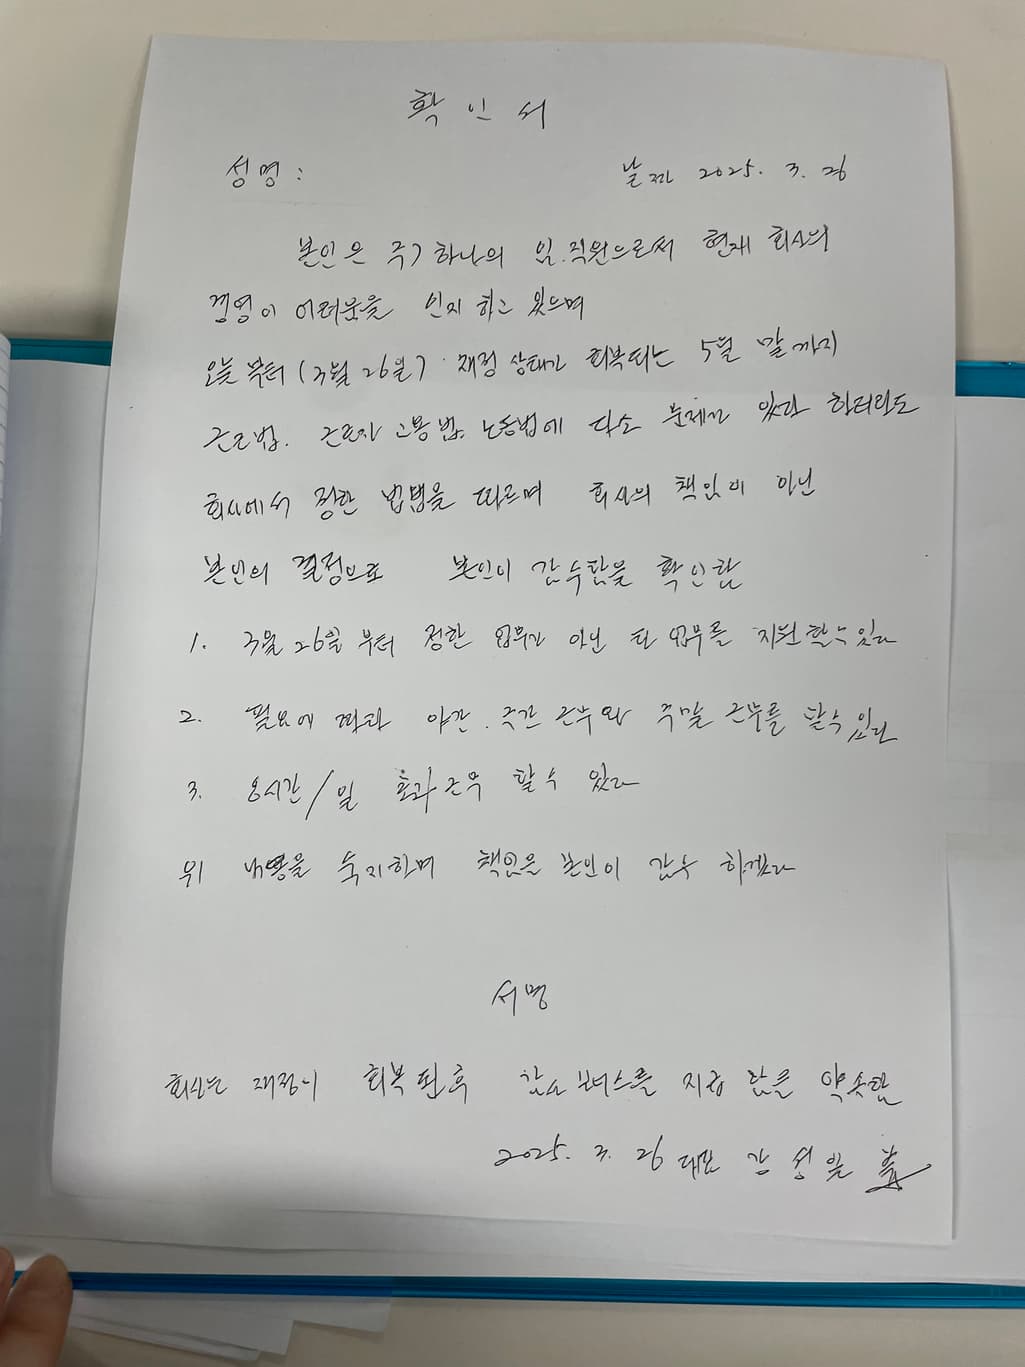 확인서
성명 : 날짜 2025. 3. 26
본인은 주) 하나의 임.직원으로써 현재 회사의
경영이 어려움을 인지 하고 있으며
오늘 부터 (3월 26일) 재정 상태가 회복되는 5월 말까지
근로법. 근로자 고용법. 노동법에 다소 문제가 있다 하더라도
회사에서 정한 방법을 따르며 회사의 책임이 아닌
본인의 결정으로 본인이 감수함을 확인함
1. 3월 26일 부터 정한 업무가 아닌 타 업무를 지원할수있다
2. 필요에 따라 야간. 주간 근무와 주말 근무를 할수있다
3. 8시간/일 초과근무 할수 있다
위 내용을 숙지하며 책임을 본인이 감수 하겠다
서명
회사는 재정이 회복된후 감사 보너스를 지급 함을 약속함
2025. 3. 26 대표 강성일